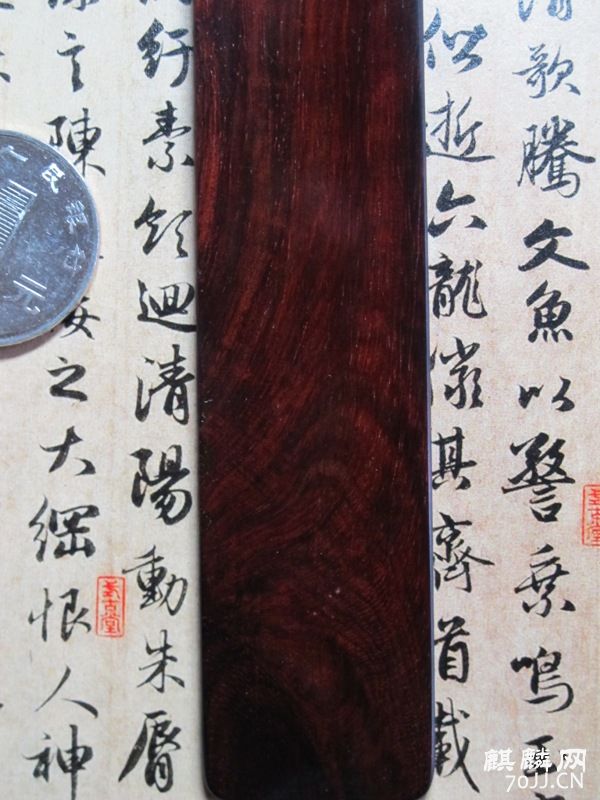 歌騰文魚以警乗鳴玉
偕逝六龍儼其齊首載
紆素領迴清陽動朱脣
言陳
接之大綱恨人神
民银行
麒麟网
70JJ.CN